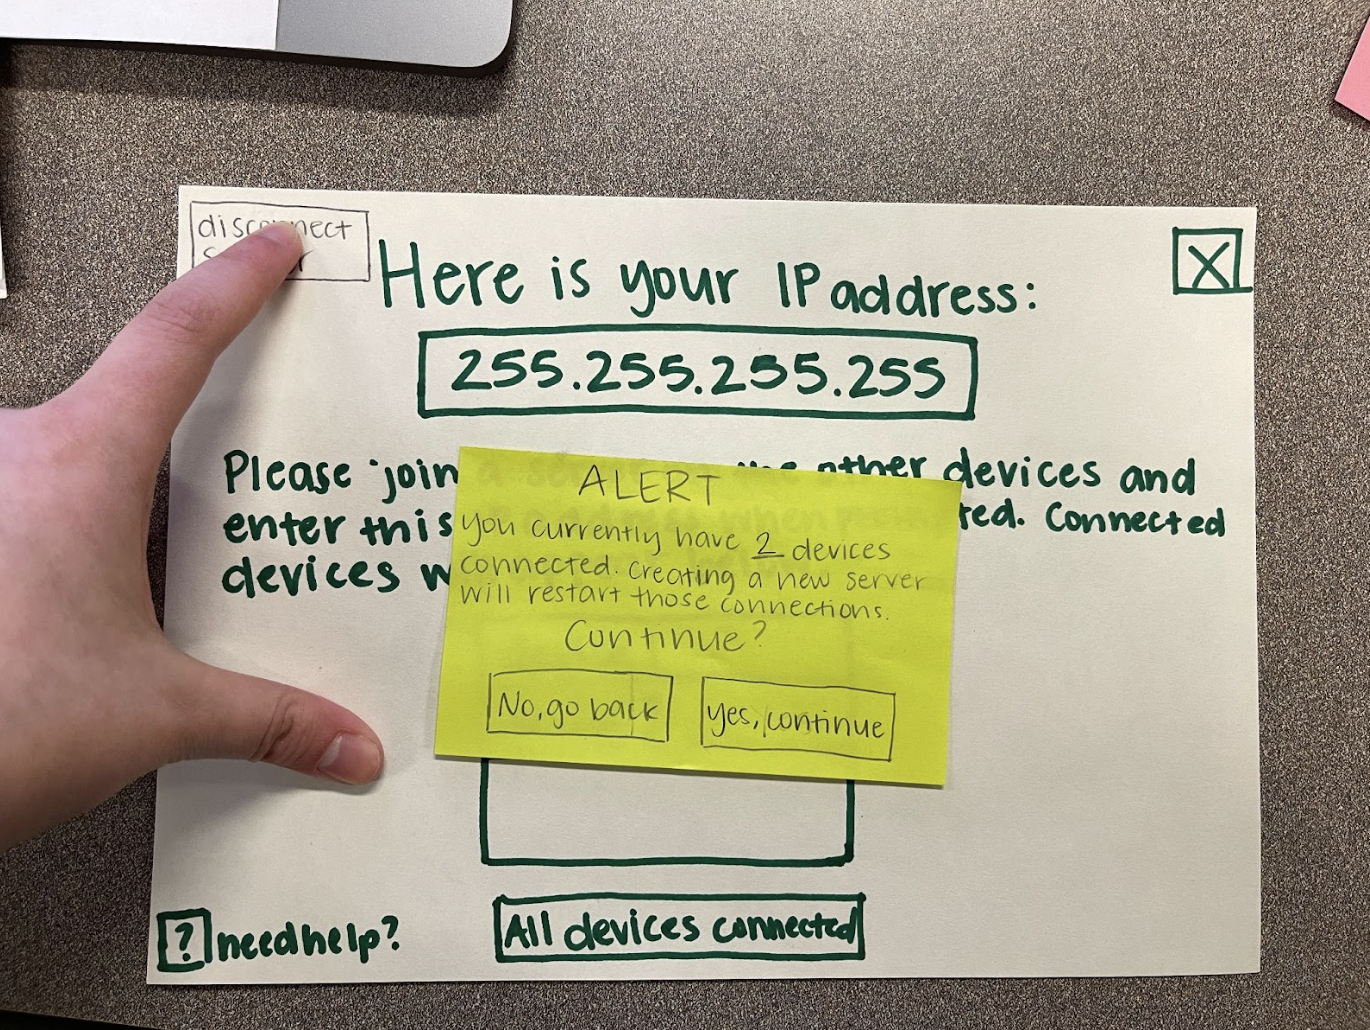 disconnect
Here is your IP address:
X
255.255.255.255
Please join other devices and
enter this ted. Connected
devices w
ALERT
you currently have 2 devices
connected. creating a new server
will restart those connections.
Continue?
No, go back
yes, continue
? need help?
All devices connected